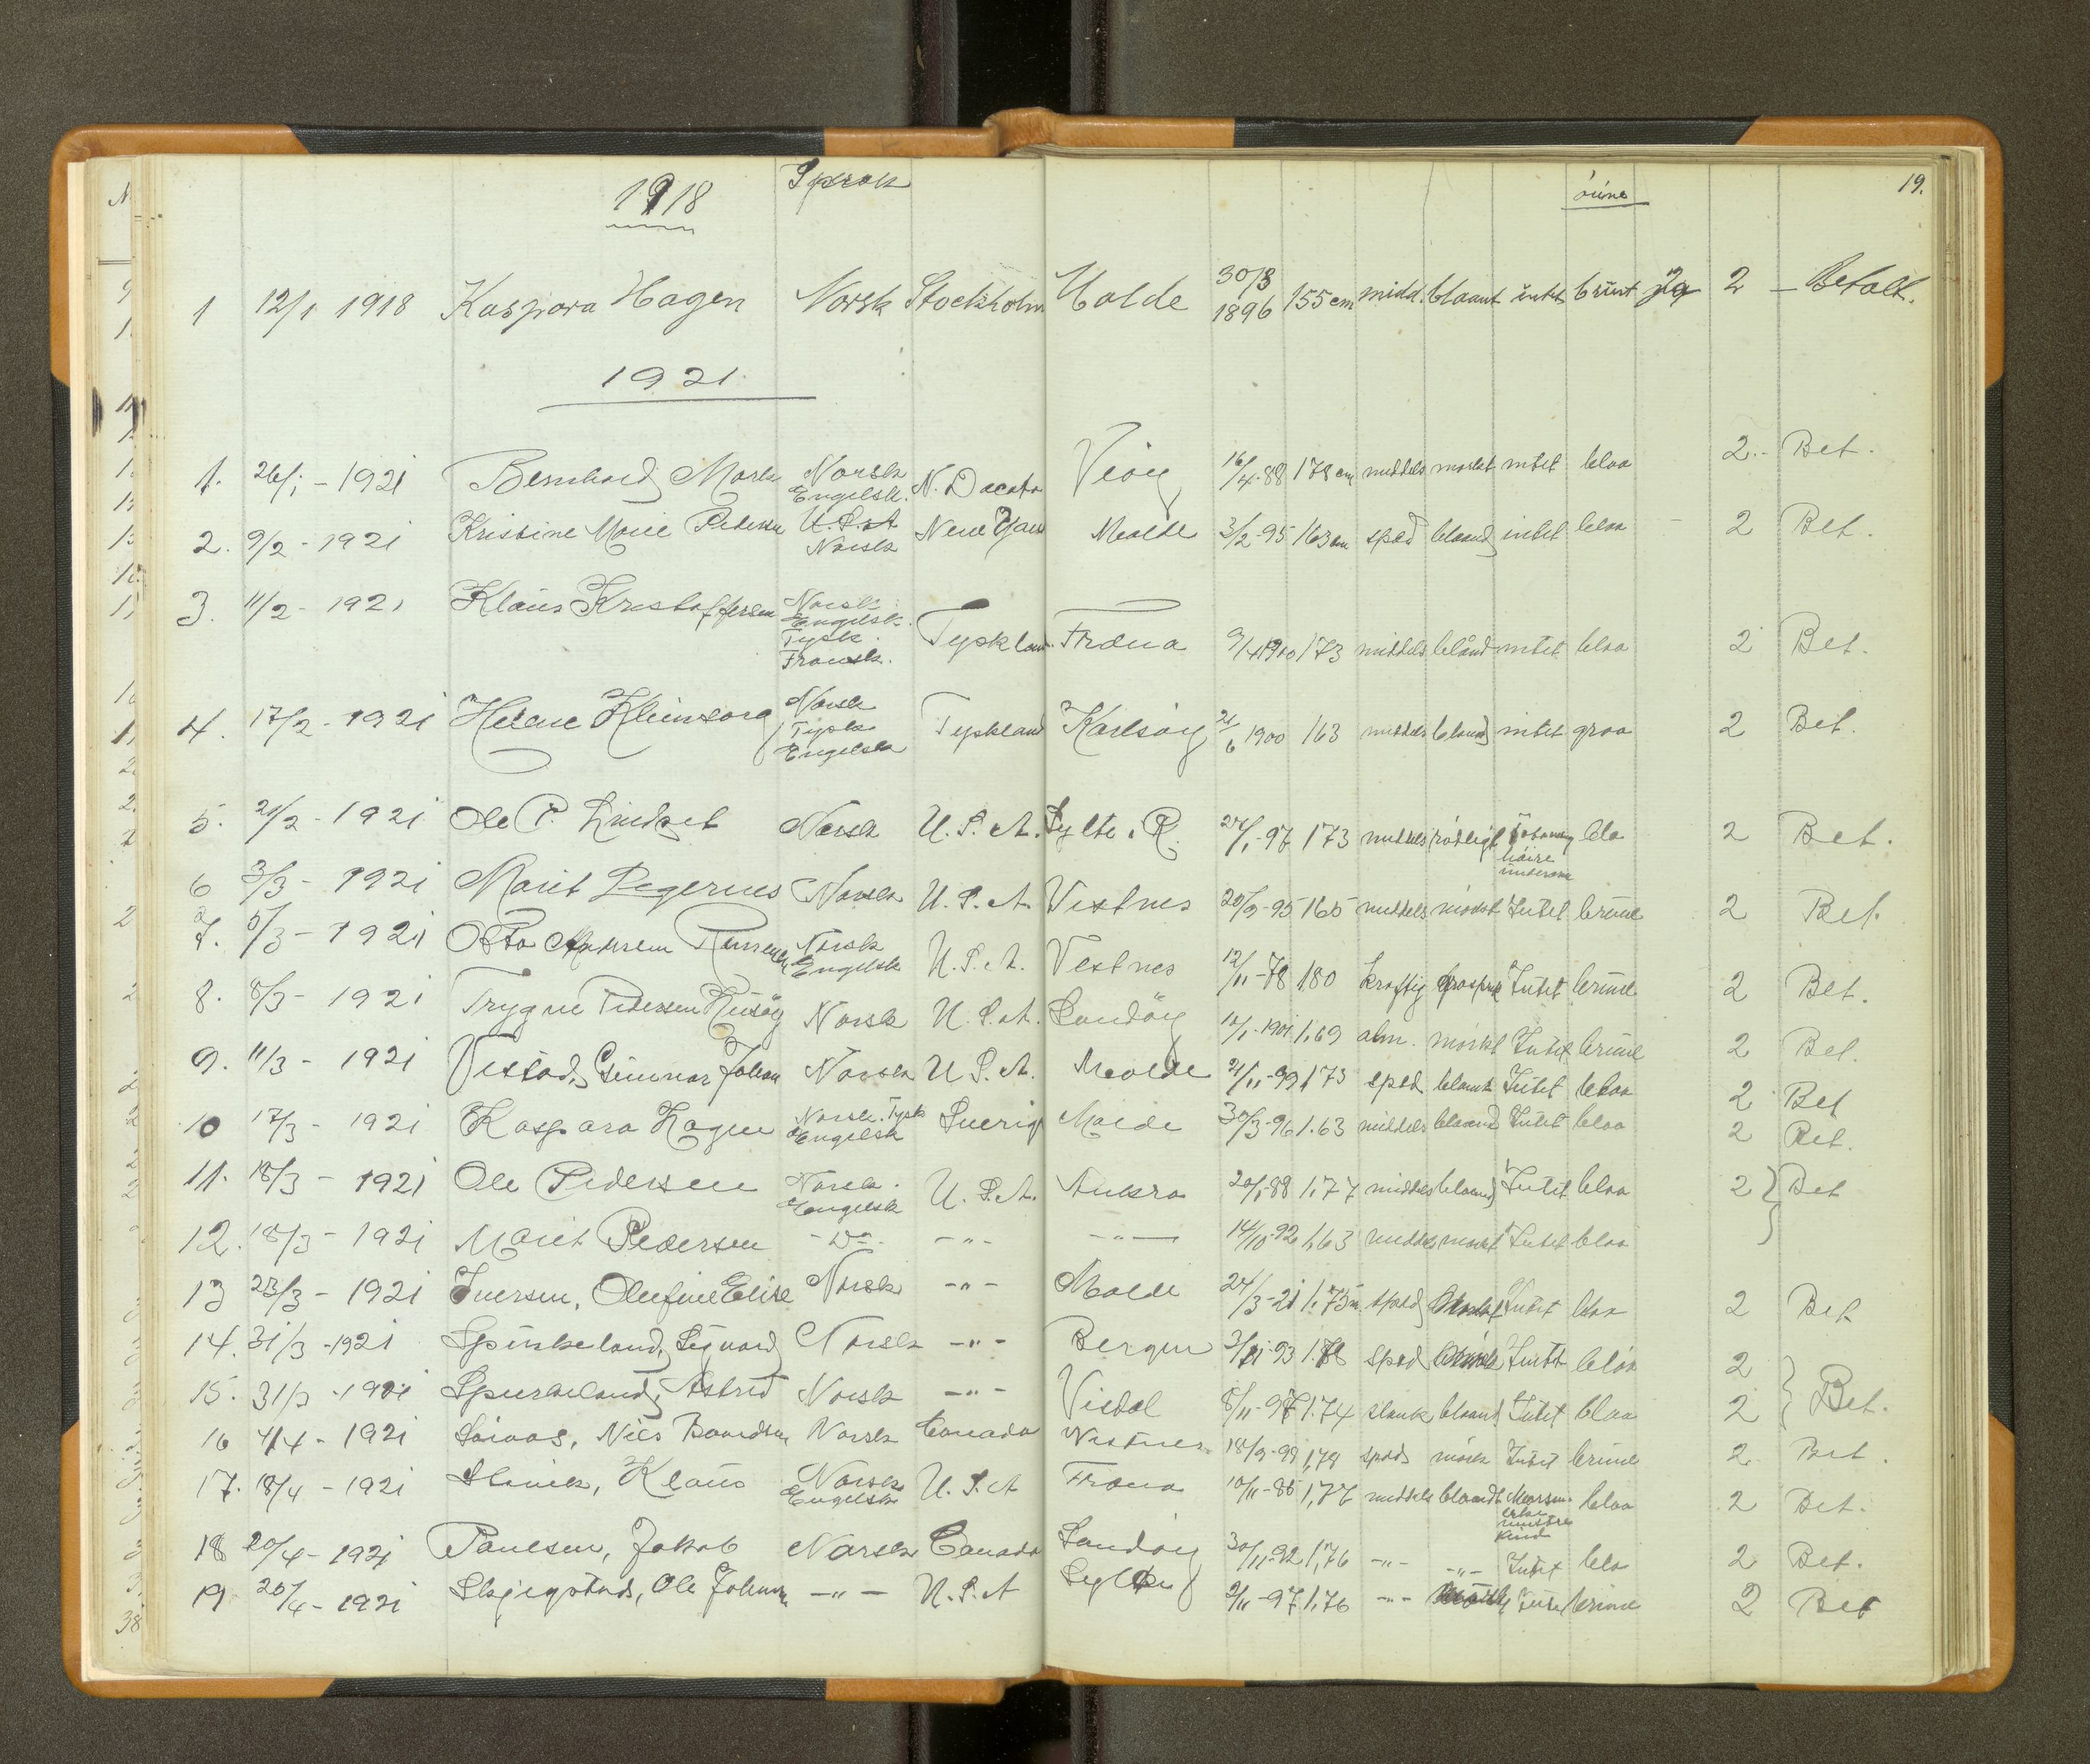 1918 Sprok øine 19.
1 12/1 1918 Kaspara Hagen Norsk Stockholm Molde 30/3 1896 155 cm midd. blaant intet brünt 2 — Betalt.
1921.
1. 26/1 - 1921 Bernhard Mork Norsk Engelsk. N. Dacota Veöy 16/4-88 178 cm middels morkt intet blaa 2 - Bet.
2. 9/2 - 1921 Kristine Marie Pedersen U.S.A Norsk New York Molde 3/2-95 163 cm spæd blaand intet blaa - 2 Bet.
3. 11/2 - 1921 Klaus Kristoffersen Norsk Engelsk. Tysk. Fransk. Tyskland Fræna 1900 173 middels blånd intet blaa 2 Bet.
4. 17/2 - 1921 Norsk Tysk Engelsk Tyskland Karlsöy 21/6 1900 163 middels blaand intet graa 2 Bet.
5. 21/2 - 1921 Ole P. Lindset Norsk U.S.A. Sylte. R. 173 middels rödligt blaa 2 Bet.
6 3/3 - 1921 Marit Norsk U.S.A. Vestnes 20/9-95 165 middels mörkt Intet brüne 2 Bet.
7. 5/3 - 1921 Otto Norsk Engelsk U.S.A. Vestnes 12/11-78 180 kraftig Intet brüne 2 Bet.
8. 8/3 - 1921 Trygve Pedersen Norsk U.S.A. Sandöy 1901 1,69 alm. mörkt Intet brüne 2 Bet.
9. 11/3 - 1921 Gunnar Johan Norsk U.S.A. Molde 173 spæd blaant Intet blaa 2 Bet
10 17/3 - 1921 Kaspara Hagen Norsk. Tysk Engelsk Sverig Molde 30/3-96 1.63 middels blaand Intet blaa 2 Bet.
11. 18/3 - 1921 Ole Pedersen Norsk. Engelsk U.S.A. Aukra 20/1-88 1,77 middels blaand Intet blaa 2 } Bet
12. 18/3 - 1921 Marit Pedersen - Do - - " - - " - 14/10-92 1,63 middels morkt Intet blaa
13 23/3 - 1921 Iversen, Olufine Elise Norsk - " - Molde 24/3-21 spæd Intet blaa 2 Bet
14. 31/3 - 1921 Spurkeland, Sigvard Norsk - " - Bergen spæd Intet blaa 2
15. 31/3 - 1921 Spurkeland, Astrid Norsk - " - Visdal 1.74 slank blaand Intet blaa 2 } Bet.
16 4/4 - 1921 Nils Norsk Canada Vestnes 18/9-99 1,78 spæd mörk Intet brüne 2 Bet.
17. 18/4 - 1921 Klaus Norsk Engelsk U.S.A Fræna 10/11-86 1,77 middels blaandt blaa 2 Bet.
18 20/4 - 1921 Paulsen, Jakob Norsk Canada Sandöy 30/11-92 1,76 - " - - " - Intet blaa 2 Bet.
19 20/4 - 1921 Ole Johan - " - U.S.A 2/11-97 1,76 - " - brüne 2 Bet
38